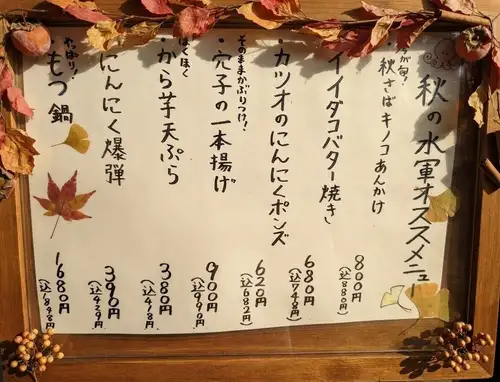 秋の水軍オススメメニュー
今が旬!
・秋さばキノコあんかけ
800円
(込880円)
イイダコバター焼き
680円
(込748円)
・カツオのにんにくポンズ
620円
(込682円)
そのままかぶりつけ!
・穴子の一本揚げ
900円
(込990円)
ほくほく
・から芋天ぷら
380円
(込418円)
にんにく爆弾
390円
(込429円)
やっぱり!
・もつ鍋
1680円
(込1848円)